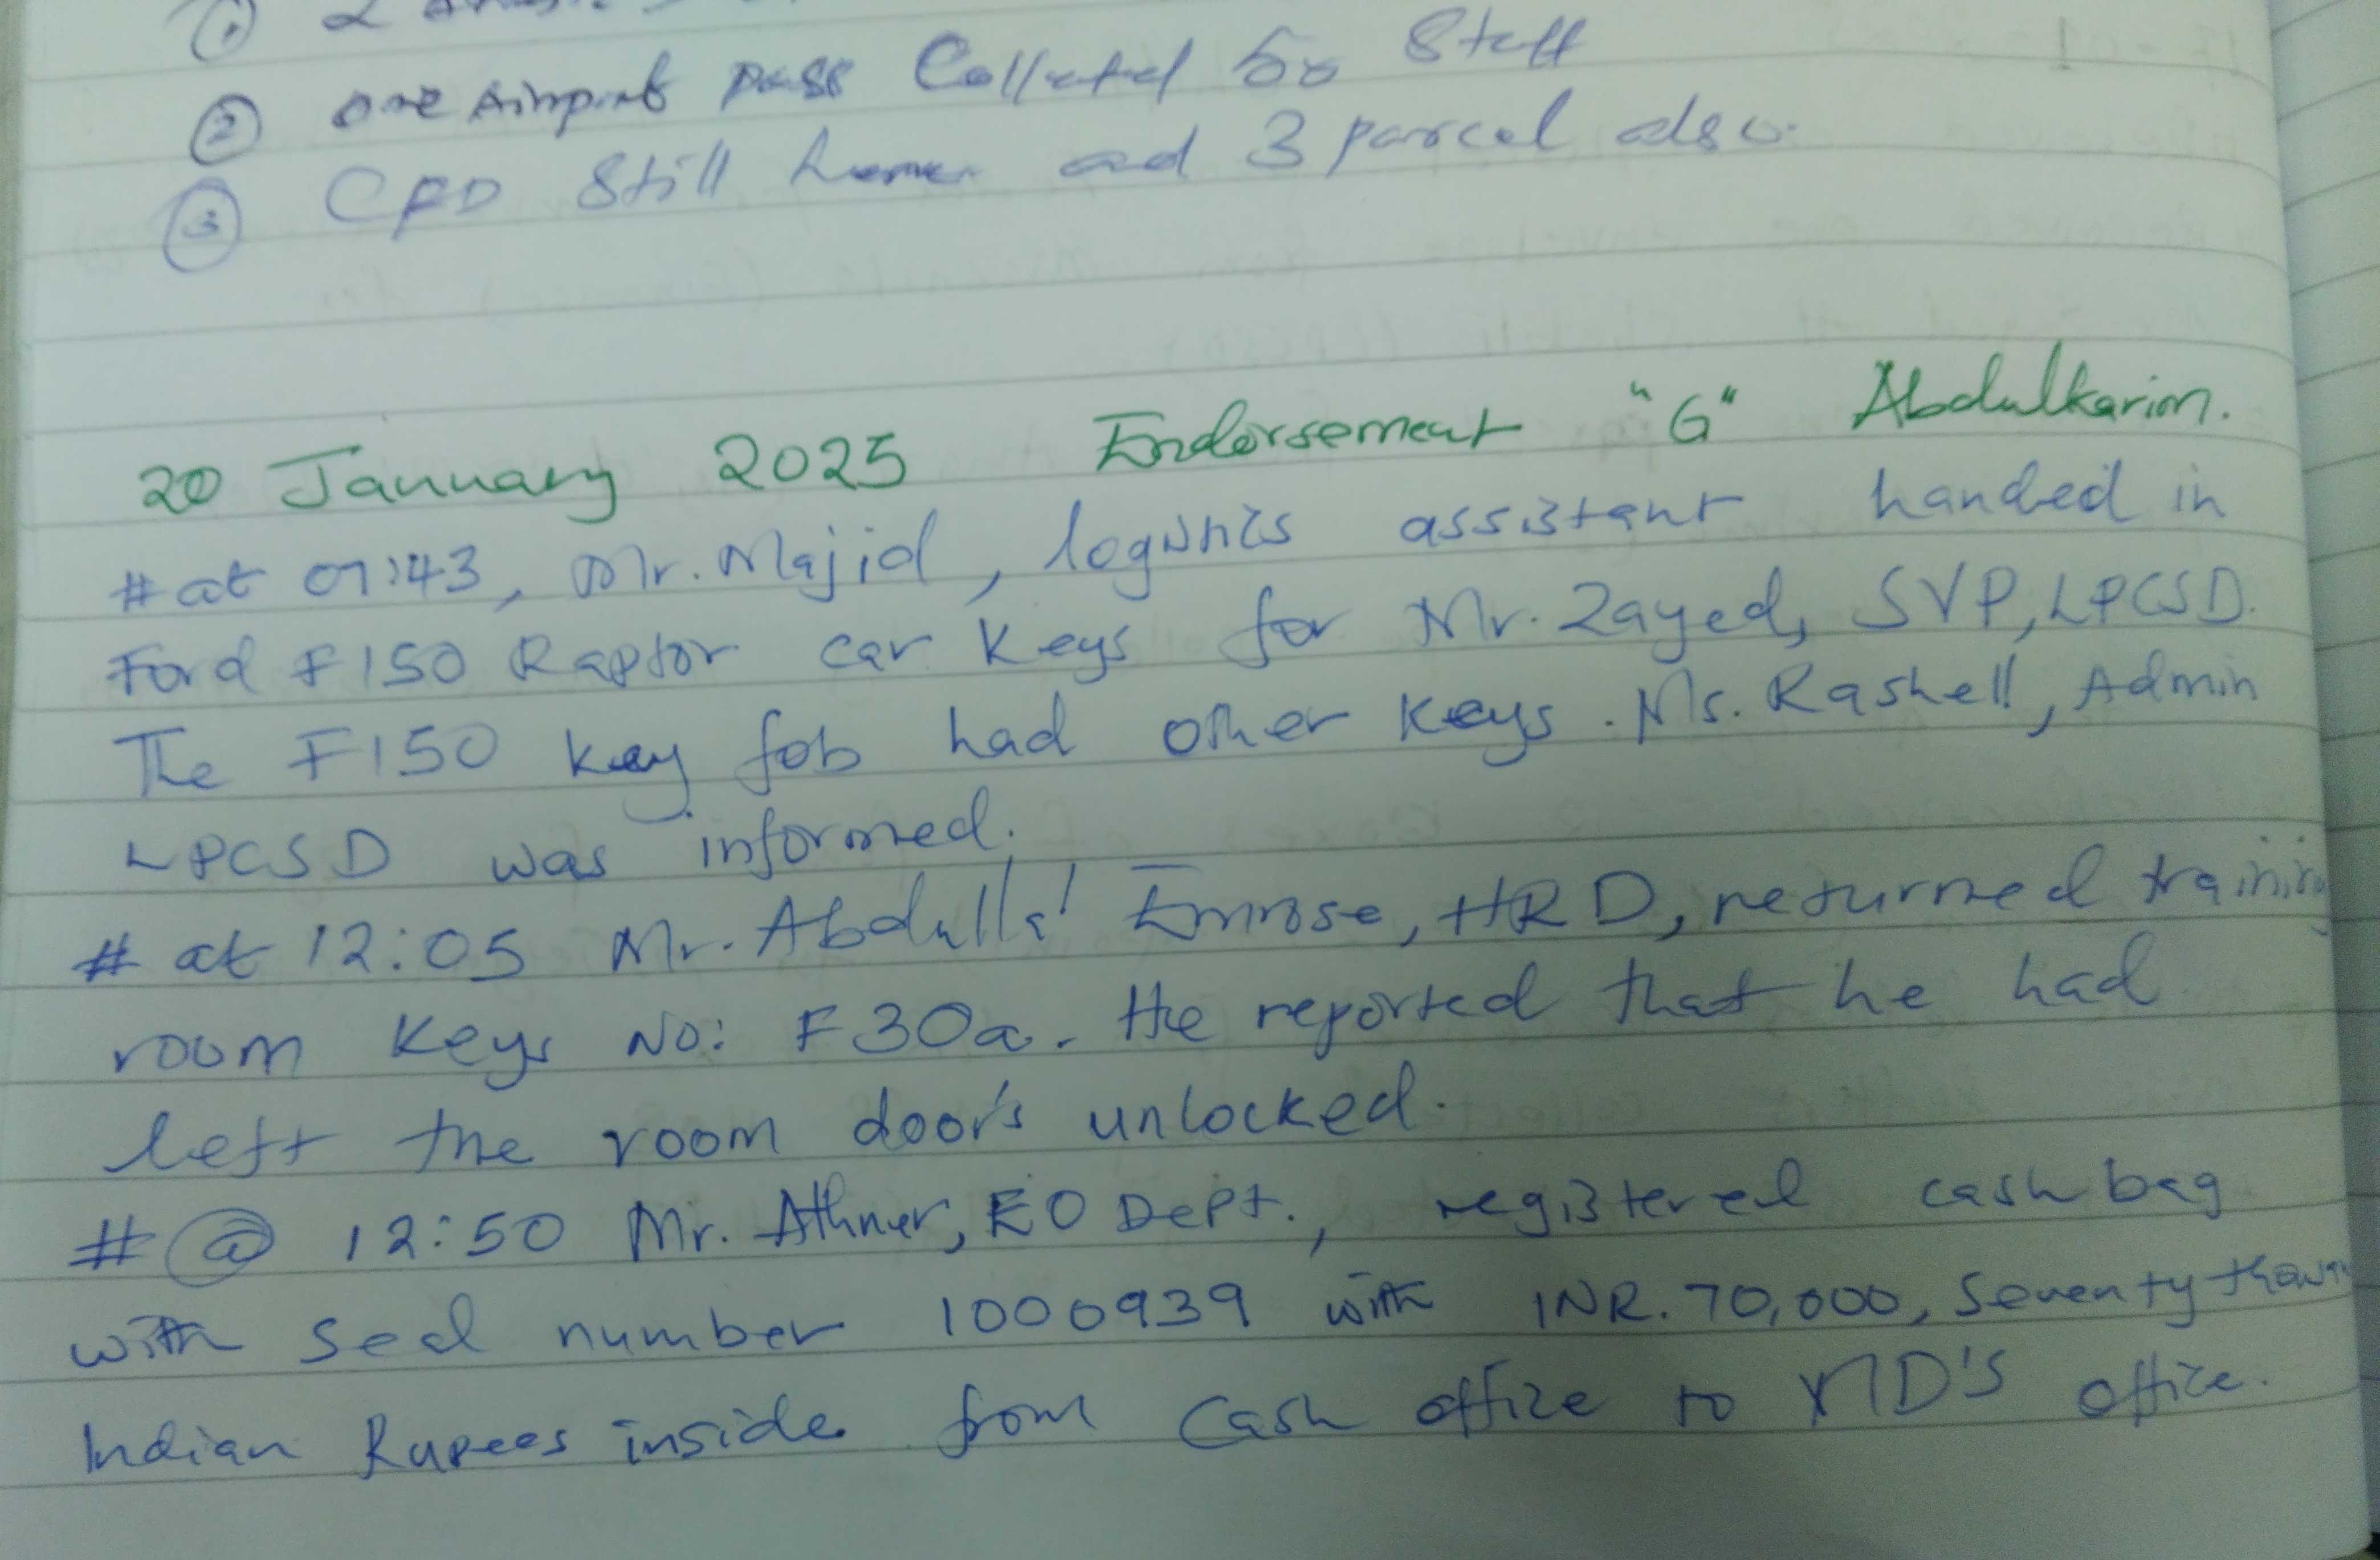 ②
② one Airport pass Collected by Staff
③ CPD Still here and 3 parcel also.
20 January 2025 Endorsement "G" Abdulkarim.
#at 07:43, Mr. Majid, logistics assistant handed in
Ford F150 Raptor car keys for Mr. Zayed, SVP, LPCSD.
The F150 key fob had other keys. Ms. Rashell, Admin
LPCSD was informed.
# at 12:05 Mr. Abdulla Emrose, HRD, returned training
room keys No: F30a. He reported that he had
left the room door's unlocked.
# @ 12:50 Mr. Athner, EO Dept., registered cash bag
with seal number 1000939 with INR. 70,000, Seventy thousand
Indian Rupees inside from Cash office to MD'S office.